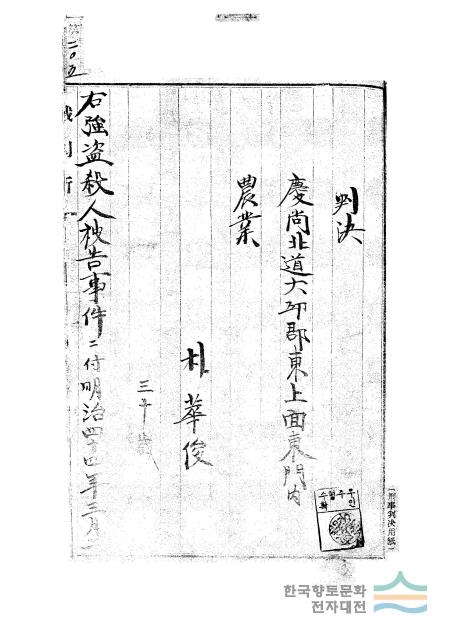 判決
慶尚北道大邱郡東上面東門内
農業
朴華俊
三十歳
右強盗殺人被告事件ニ付明治四十四年三月
二〇五
刑事判決用紙
한국향토문화
전자대전